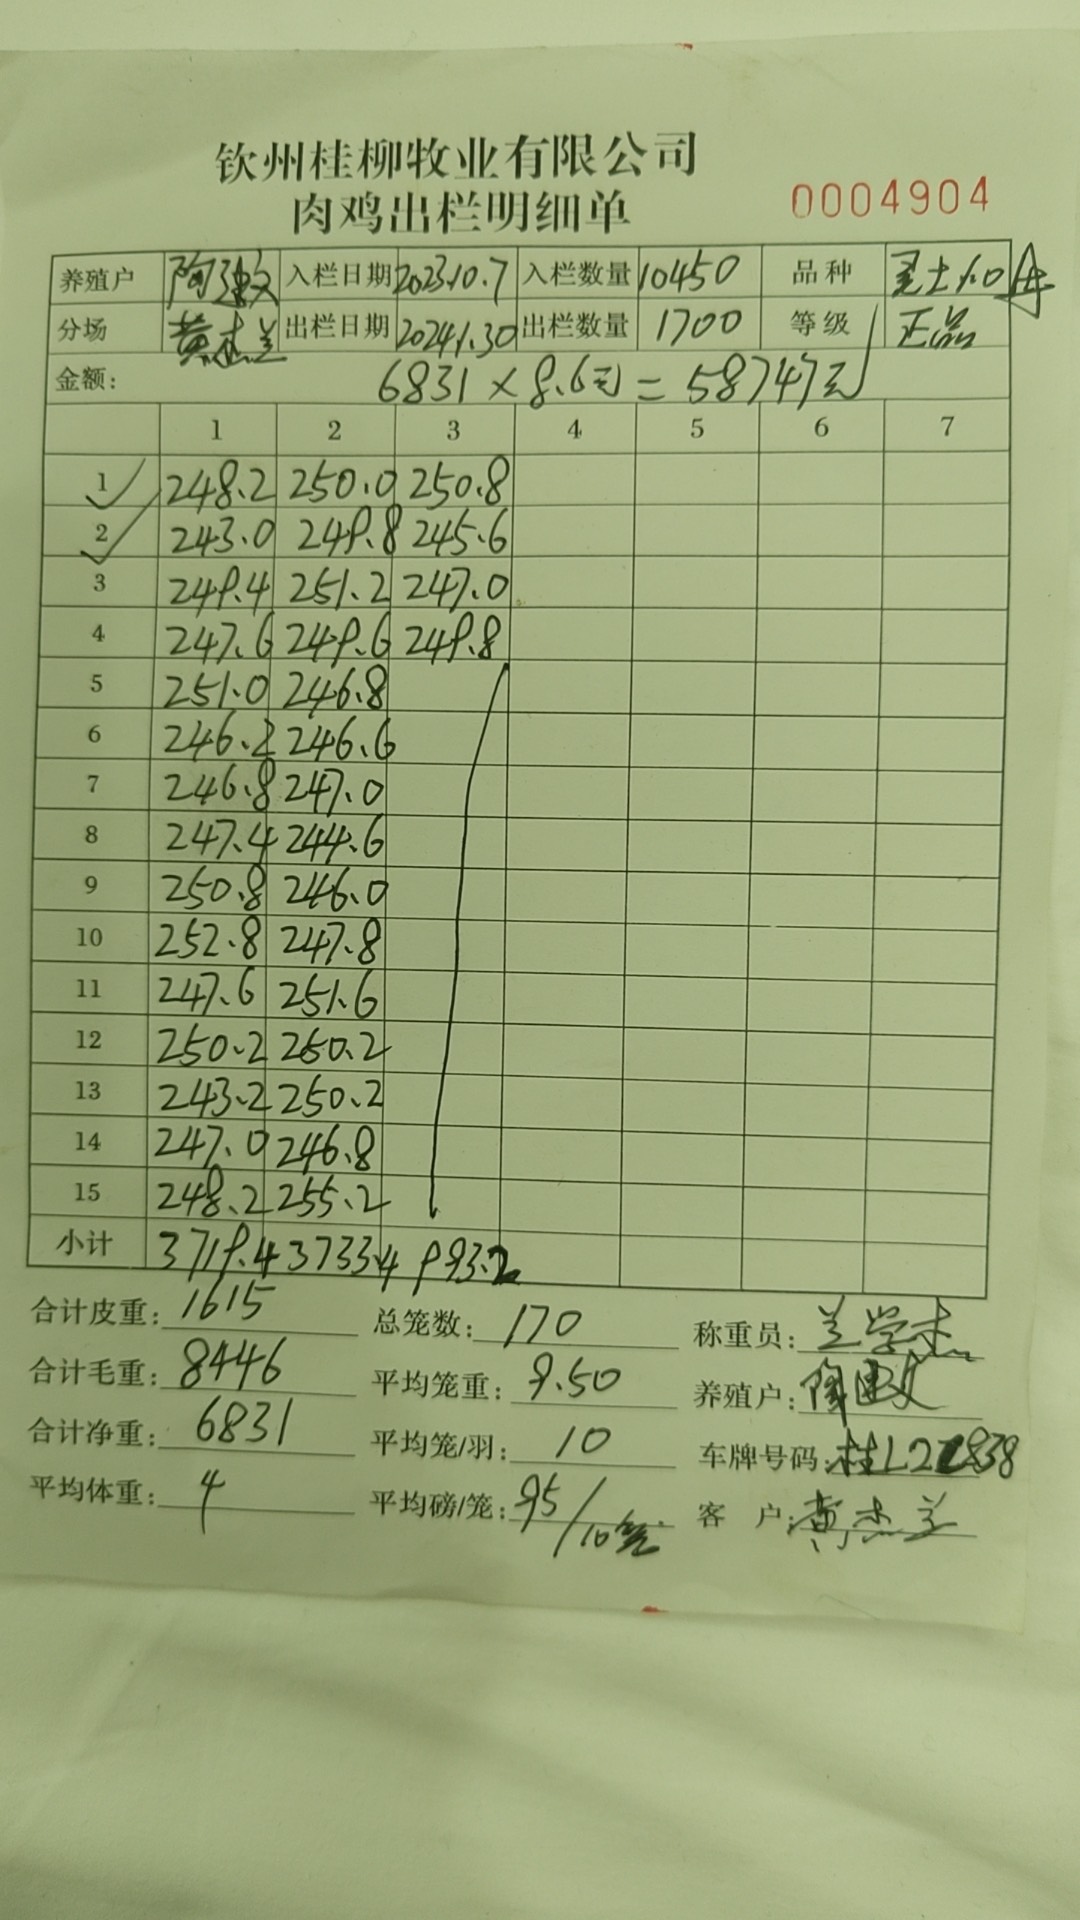 钦州桂柳牧业有限公司
肉鸡出栏明细单 0004904
养殖户 陶建文 入栏日期 2023.10.7 入栏数量 10450 品种
分场 黄杰兰 出栏日期 2024.1.30 出栏数量 1700 等级 正品
金额: 6831×8.6元=58747元
1 2 3 4 5 6 7
1 248.2 250.0 250.8
2 243.0 249.8 245.6
3 249.4 251.2 247.0
4 247.6 249.6 249.8
5 251.0 246.8
6 246.2 246.6
7 246.8 247.0
8 247.4 244.6
9 250.8 246.0
10 252.8 247.8
11 247.6 251.6
12 250.2 250.2
13 243.2 250.2
14 247.0 246.8
15 248.2 255.2
小计 3719.4 3733.4 993.2
合计皮重: 1615 总笼数: 170 称重员: 兰学杰
合计毛重: 8446 平均笼重: 9.50 养殖户: 陶建文
合计净重: 6831 平均笼/羽: 10 车牌号码: 桂L
平均体重: 4 平均磅/笼: 95/10笼 客户: 黄杰兰